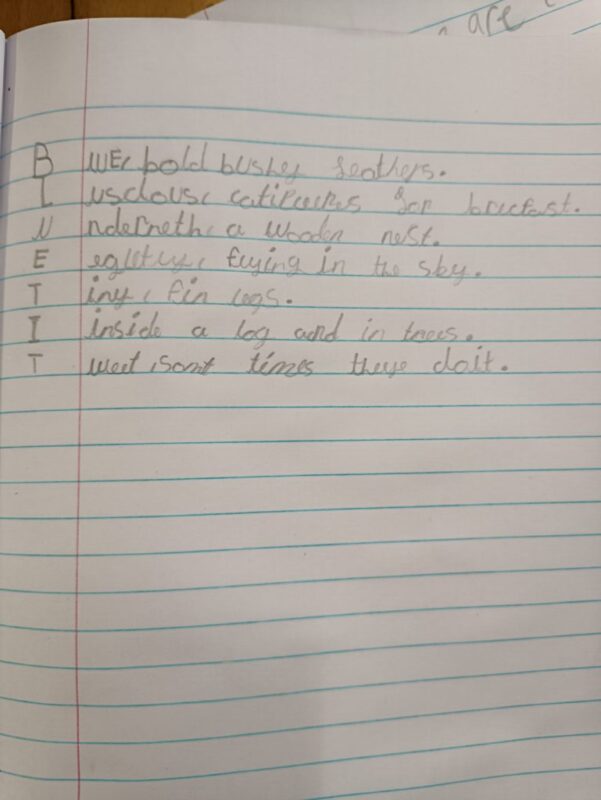 are
B wer bold bushey feathers.
L usclous, catipeches for brecfast.
U nderneth, a wooden nest.
E egletly, flying in the sky.
T iny, fin legs.
I inside a log and in trees.
T weet, somt times theye doit.